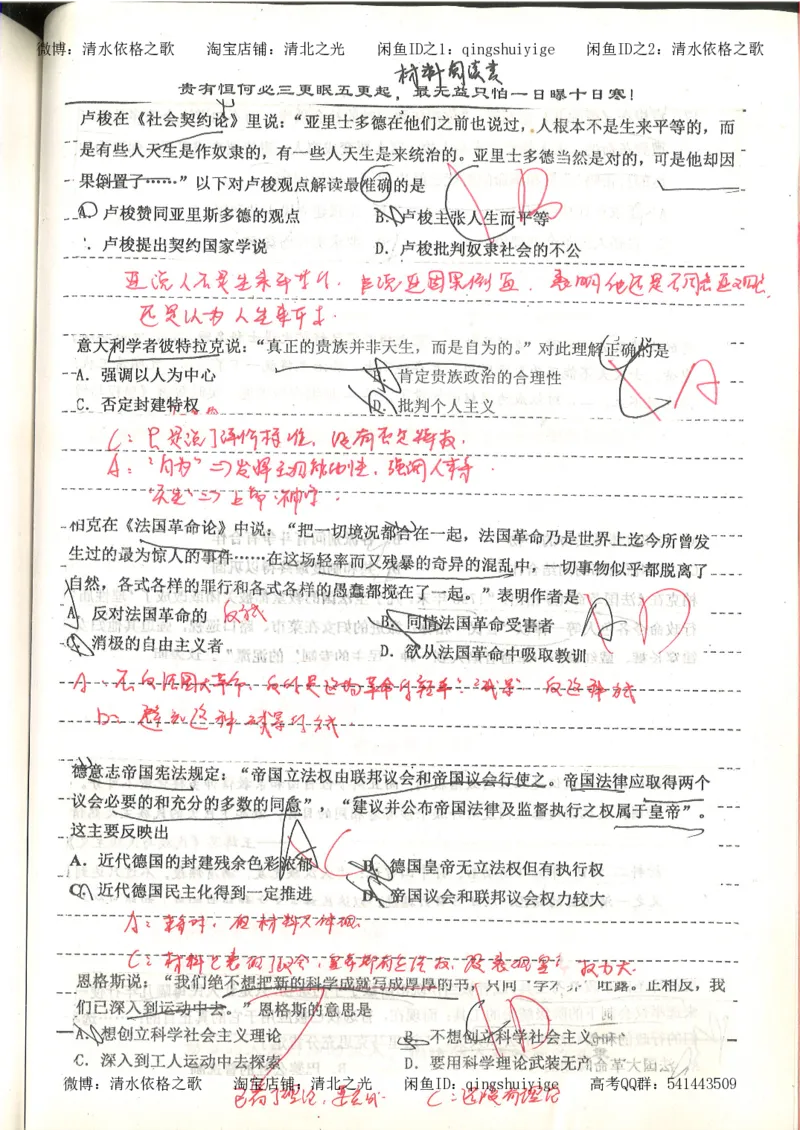 微博：清水依格之歌 淘宝店铺：清北之光 闲鱼ID之1：qingshuiyige 闲鱼ID之2：清水依格之歌
材料阅读类
贵有恒何必三更眠五更起，最无益只怕一日曝十日寒！
卢梭在《社会契约论》里说：“亚里士多德在他们之前也说过，人根本不是生来平等的，而
是有些人天生是作奴隶的，有一些人天生是来统治的。亚里士多德当然是对的，可是他却因
果倒置了……”以下对卢梭观点解读最准确的是
A. 卢梭赞同亚里斯多德的观点 B. 卢梭主张人生而平等 B
卢梭提出契约国家学说 D. 卢梭批判奴隶社会的不公
亚说人不是生来平等, 卢说亚因果倒置, 表明他还是不同意亚观点,
还是认为人生来平等.
意大利学者彼特拉克说：“真正的贵族并非天生，而是自为的。”对此理解正确的是
A．强调以人为中心 B. 肯定贵族政治的合理性 A
C．否定封建特权 D. 批判个人主义
C: 只是说了评价标准, 没有否定特权.
A: “自为”⇒发挥主观能动性, 强调人事
“天生”⇒上帝、神学.
柏克在《法国革命论》中说：“把一切境况都合在一起，法国革命乃是世界上迄今所曾发
生过的最为惊人的事件……在这场轻率而又残暴的奇异的混乱中，一切事物似乎都脱离了
自然，各式各样的罪行和各式各样的愚蠢都搅在了一起。”表明作者是
A. 反对法国革命的 B. 同情法国革命受害者 A D
C. 消极的自由主义者 D. 欲从法国革命中吸取教训
德意志帝国宪法规定：“帝国立法权由联邦议会和帝国议会行使之。帝国法律应取得两个
议会必要的和充分的多数的同意”，“建议并公布帝国法律及监督执行之权属于皇帝”。
这主要反映出
A．近代德国的封建残余色彩浓郁 B. 德国皇帝无立法权但有执行权 A C
C. 近代德国民主化得到一定推进 D. 帝国议会和联邦议会权力较大
恩格斯说：“我们绝不想把新的科学成就写成厚厚的书，只向“学术界”吐露。正相反，我
们已深入到运动中去。”恩格斯的意思是
A. 想创立科学社会主义理论 B. 不想创立科学社会主义 D
C．深入到工人运动中去探索 D．要用科学理论武装无产
微博：清水依格之歌 淘宝店铺：清北之光 闲鱼ID：qingshuiyige 高考QQ群：541443509